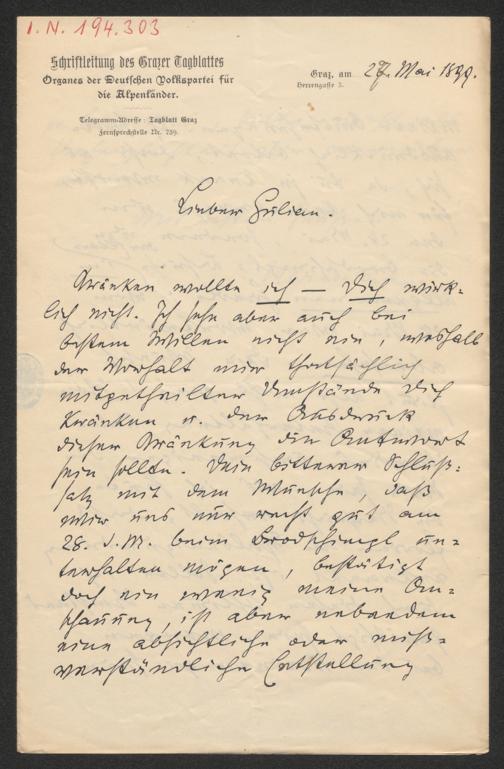 I. N. 194.303
Schriftleitung des Grazer Tagblattes
Organes der Deutschen Volkspartei für
die Alpenländer.
Telegramm-Adresse: Tagblatt Graz
Fernsprechstelle Nr. 739.
Graz, am 27. Mai 1899.
Herrengasse 3.
Lieber Julian.
Kränken wollte ich — Dich wirk-
lich nicht. Ich sehe aber auch bei
bestem Willen nicht ein, weshalb
der Vorhalt mir thatsächlich
mitgetheilter Umstände Dich
kränken u. der Ausdruck
dieser Kränkung die Antwort
sein sollte. Dein bitterer Schluß-
satz mit dem Wunsche, daß
wir uns nur recht gut am
28. d. M. beim Brodschimpl un-
terhalten mögen, bestätigt
doch ein wenig meine An-
schauung, ist aber nebendem
eine absichtliche oder miß-
verständliche Entstellung